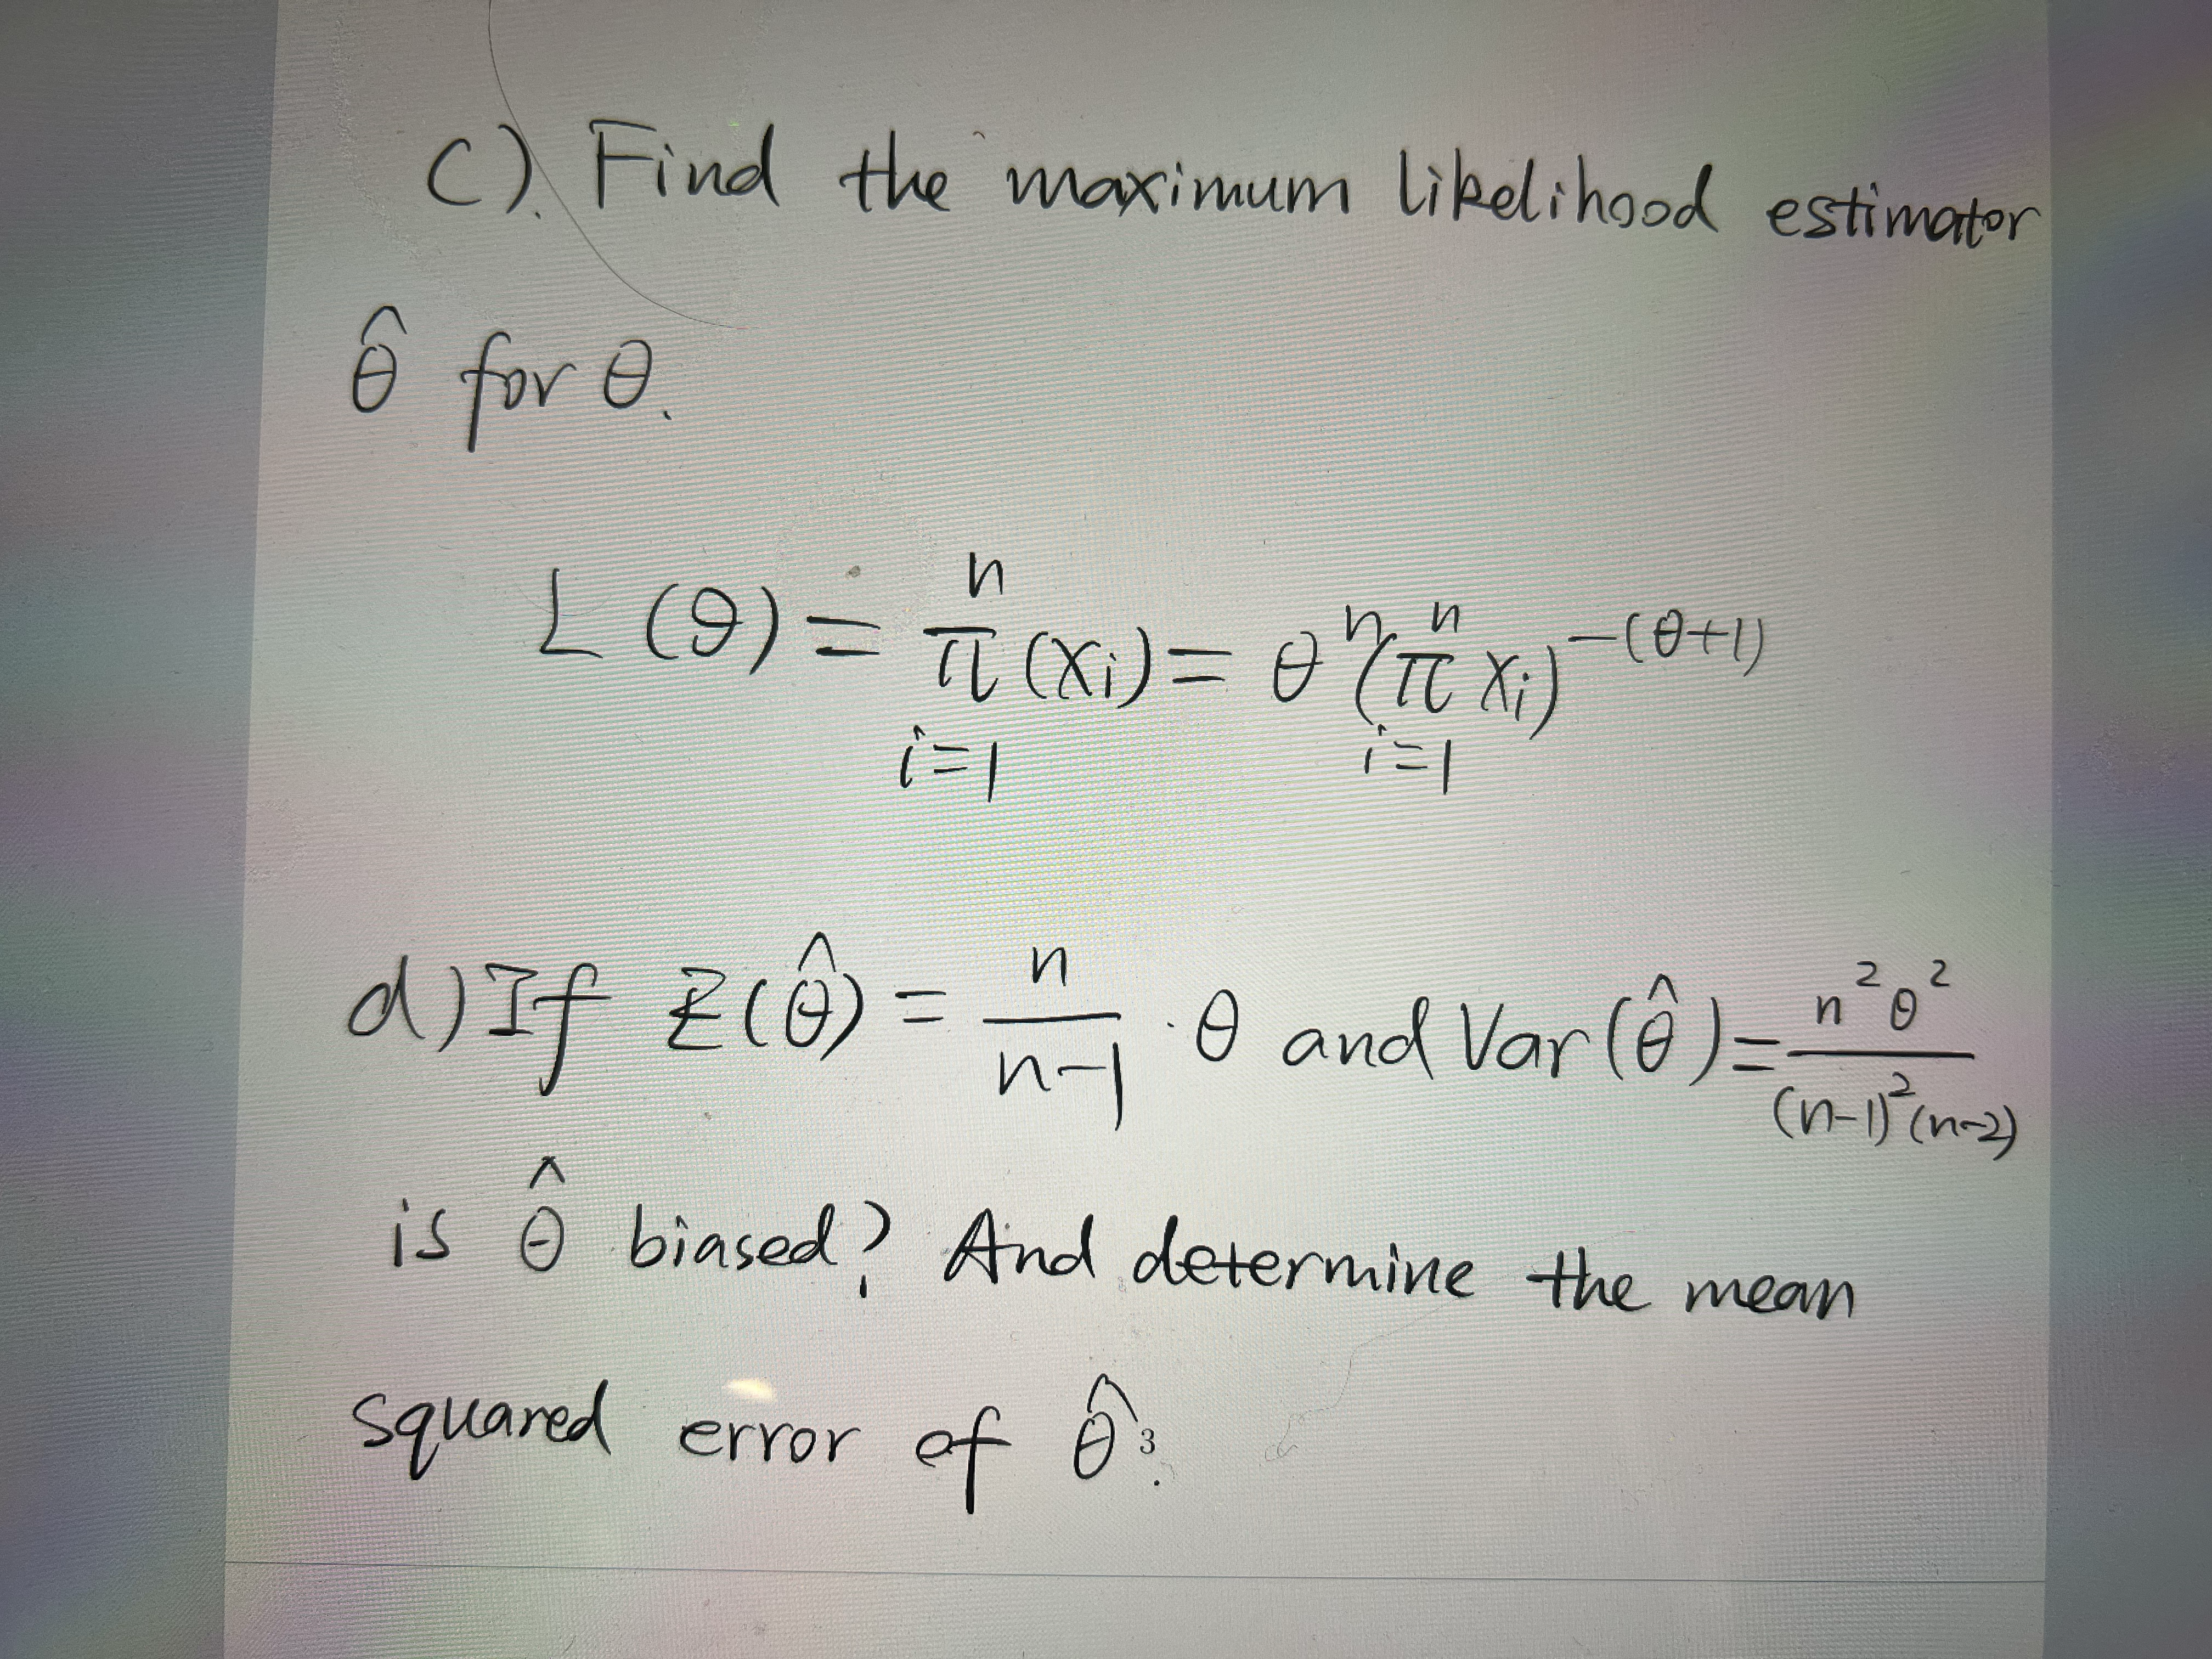 C). Find the maximum likelihood estimator
θ̂ for θ.
L(θ) = ∏ⁿᵢ₌₁ (xᵢ) = θⁿ (∏ⁿᵢ₌₁ xᵢ)^-(θ+1)
d) If E(θ̂) = n/(n-1) · θ and Var(θ̂) = n²θ²/((n-1)²(n-2))
is θ̂ biased? And determine the mean
squared error of θ̂.
3